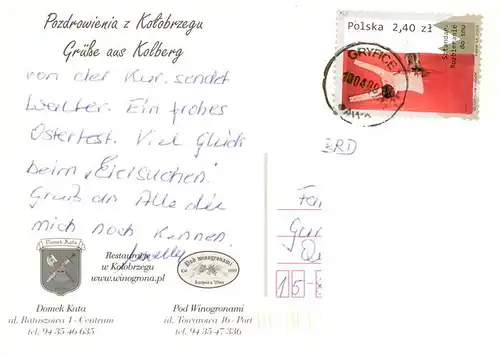 Pozdrowienia z Kołobrzegu
Grüße aus Kolberg
von der Kur sendet
Walter. Ein frohes
Osterfest. Viel Glück
beim "Eiersuchen."
Gruß an Alle die
mich noch kennen.
Polska 2,40 zł
Sztandar
Rozbieranie
do snu
GRYFICE 1
BRD
Fa
Gu
15-
Domek Kata
Restauracje
w Kołobrzegu
www.winogrona.pl
Pod winogronami
Domek Kata
ul. Ratuszowa 1 - Centrum
tel. 94 35 46 635
Pod Winogronami
ul. Towarowa 16 - Port
tel. 94 35 47 336